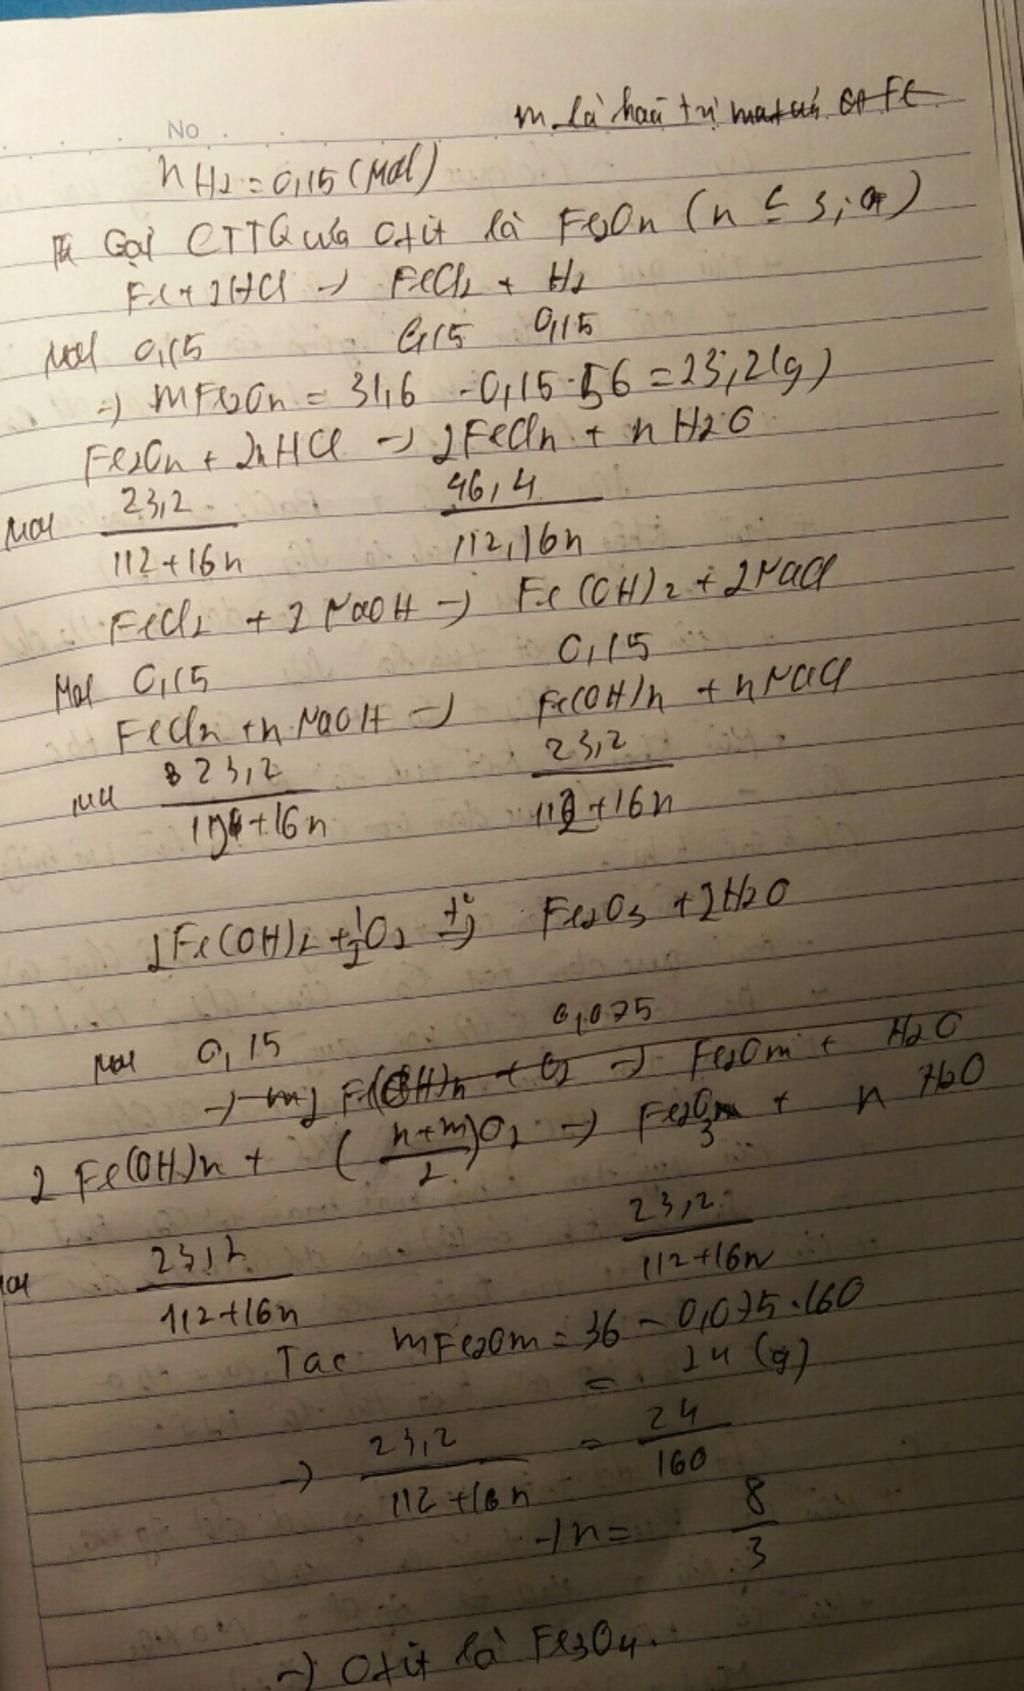 m là hoá trị Fe
No
nH2 = 0,15 (mol)
Gọi CTTQ của Oxit là Fe2On (n ≤ 3; )
Fe + 2HCl → FeCl2 + H2
Mol 0,15 0,15 0,15
→ mFe2On = 31,6 - 0,15.56 = 23,2 (g)
Fe2On + 2nHCl → 2FeCln + nH2O
Mol 23,2/112+16n 46,4/112,16n
FeCl2 + 2NaOH → Fe(OH)2 + 2NaCl
Mol 0,15 0,15
FeCln + n NaOH → Fe(OH)n + nNaCl
Mol 23,2/112+16n 23,2/112+16n
2Fe(OH)2 + 1/2O2 →t° Fe2O3 + 2H2O
Mol 0,15 0,075
→ Fe(OH)n + O2 → Fe2Om + H2O
2Fe(OH)n + (n+m/2)O2 → Fe2O3 + n H2O
Mol 23,2/112+16n 23,2/112+16n
Tac mFe2Om = 36 - 0,075.160
= 24 (g)
→ 23,2/112+16n = 24/160
→ n = 8/3
→ Oxit là Fe3O4.